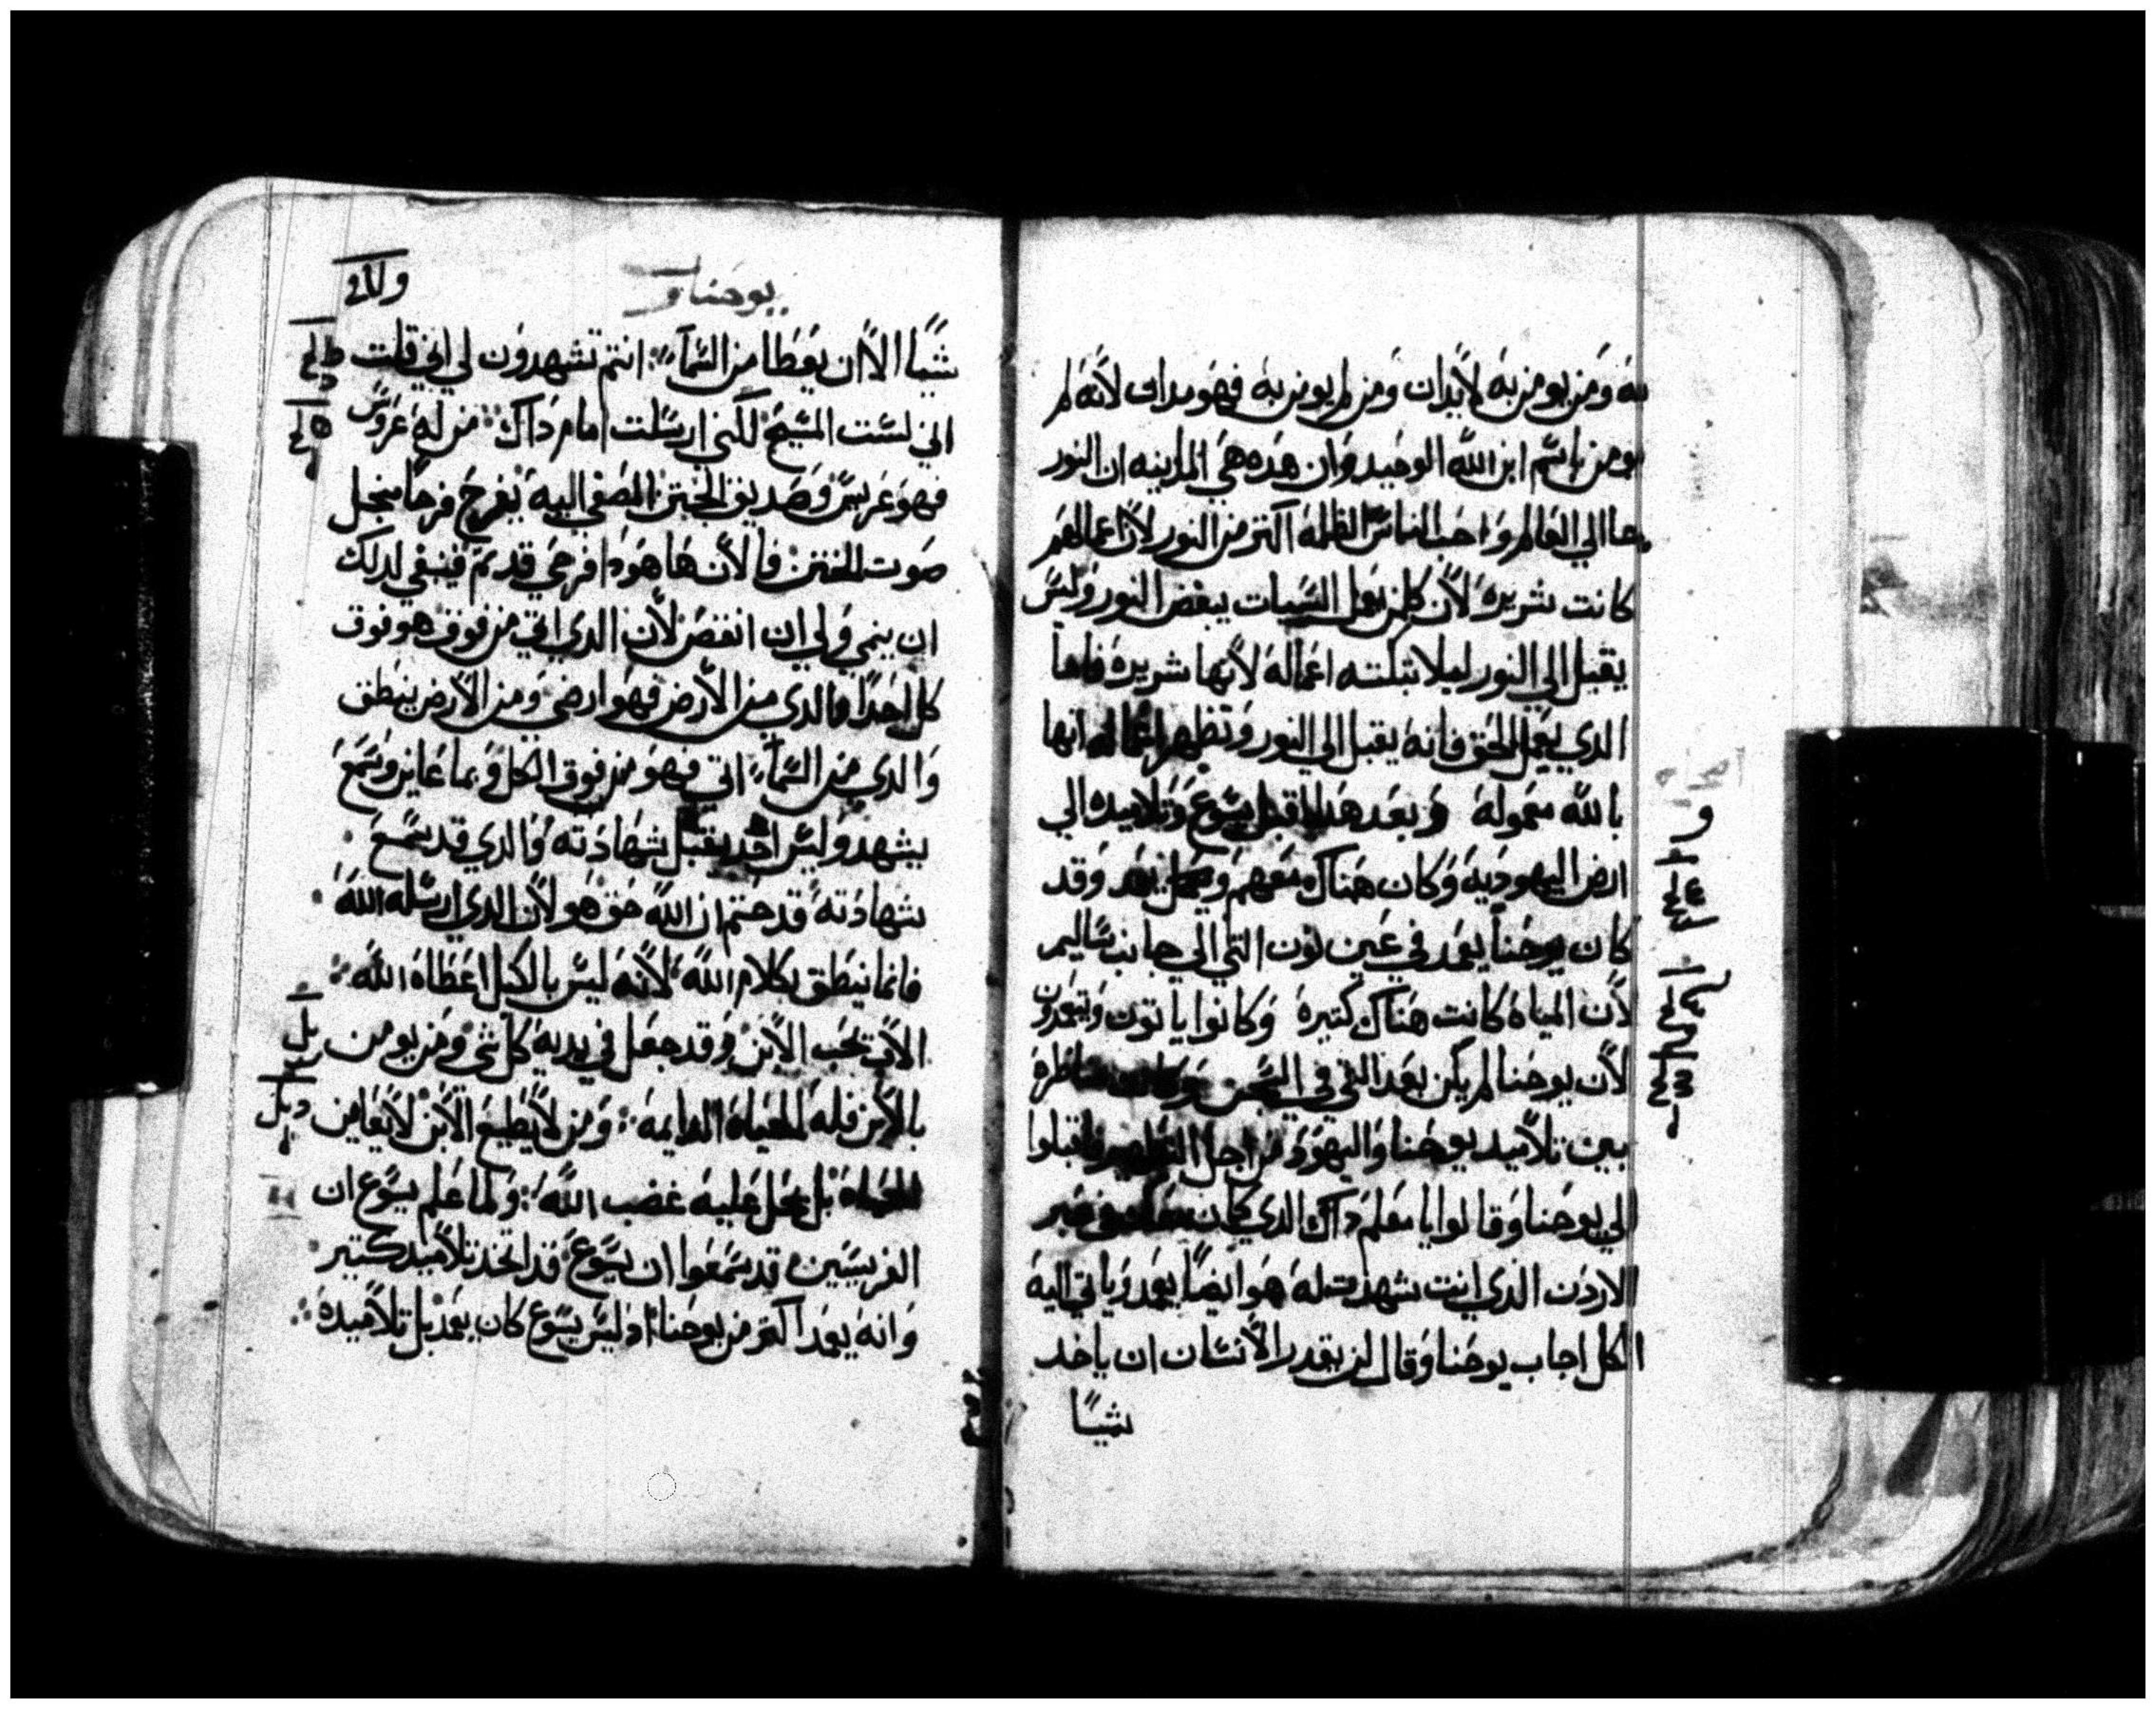 به ومن يومن به لا يدان ومن لم يومن به فهو مدان لانه لم
يومن باسم ابن الله الوحيد وان هده هي المداينه ان النور
جا الي العالم واحب الناس الظلمه اكتر من النور لان اعمالهم
كانت شريره لان كلمن يعمل السيات يبغض النور وليس
يقبل الي النور ليلا تبكته اعماله لانها شريره فاما
الدي يعمل الحق فانه يقبل الي النور وتظهر اعماله انها
بالله معموله وبعد هدا اقبل يسوع وتلاميده الي
ارض اليهوديه وكان هناك معهم يعمد وقد
كان يوحنا يعمد في عين نون التي الي جانب ساليم
لان المياه كانت هناك كتيره وكانوا ياتون ويتعمدون
لان يوحنا لم يكن بعد القي في السجن وكانت مناظره
بين تلاميد يوحنا واليهود من اجل التطهير واقبلوا
الي يوحنا وقالوا يا معلم داك الدي كان معك في عبر
الاردن الدي انت شهدت له هو ايضا يعمد وياتي اليه
الكل اجاب يوحنا وقال لن يقدر الانسان ان ياخد
شيا
يوحنا
شيا الا ان يعطا من السما انتم تشهدون لي اني قلت
اني لست المسيح لكني ارسلت امام داك من له عروس
فهو عريس وصديق الختن المصغي اليه يفرح فرحا من اجل
صوت الختن فالان ها هودا فرحي قد تم فينبغي لدلك
ان ينمي ولي ان انقص لان الدي اتي من فوق هو فوق
كل احدا والدي من الارض فهو ارضي ومن الارض ينطق
والدي من السما اتي فهو من فوق الكل وبما عاين وسمع
يشهد وليس احد يقبل شهادته والدي قد سمع
شهادته قد ختم ان الله حق هو لان الدي ارسله الله
فانما ينطق بكلام الله لانه ليس بالكيل اعطاه الله
الاب يحب الابن وقد جعل في يديه كل شي ومن يومن
بالابن فله الحياه الدايمه ومن لا يطيع الابن لا يعاين
الحياه بل يحل عليه غضب الله ولما علم يسوع ان
الفريسين قد سمعوا ان يسوع قد اتخد تلاميد كتير
وانه يعمد اكتر من يوحنا اد ليس يسوع كان يعمد بل تلاميده